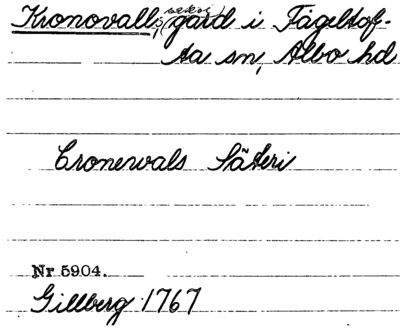 Kronovall, gård i Fågeltof-
ta sn, Albo hd
Cronewals Säteri
Nr 5904.
Gillberg 1767